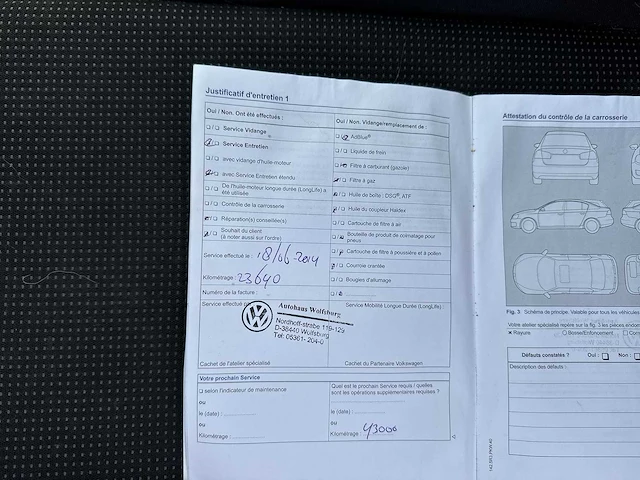 Justificatif d'entretien 1
Oui / Non. Ont été effectués :
Service Vidange
Service Entretien
avec vidange d'huile-moteur
avec Service Entretien étendu
De l'huile-moteur longue durée (LongLife) a
été utilisée
Contrôle de la carrosserie
Réparation(s) conseillée(s)
Souhait du client
(à noter aussi sur l'ordre)
Service effectué le : 18/06-2014
Kilométrage : 23640
Numéro de la facture :
Service effectué
Autohaus Wolfsburg
Nordhoff-strabe 119-129
D-38440 Wolfsburg
Tel: 05361- 204-0
Cachet de l'atelier spécialisé
Oui / Non. Vidange/remplacement de :
AdBlue®
Liquide de frein
Filtre à carburant (gazole)
Filtre à gaz
Huile de boîte : DSG®, ATF
Huile du coupleur Haldex
Cartouche de filtre à air
Bouteille de produit de colmatage pour
pneus
Cartouche de filtre à poussière et à pollen
Courroie crantée
Bougies d'allumage
Service Mobilité Longue Durée (LongLife) :
Cachet du Partenaire Volkswagen
Votre prochain Service
selon l'indicateur de maintenance
ou
le (date) :
ou
Kilométrage :
Quel est le prochain Service requis / quelles
sont les opérations supplémentaires requises ?
le (date) :
ou
Kilométrage : 43000
Attestation du contrôle de la carrosserie
Fig. 3 Schéma de principe. Valable pour tous les véhicules
Votre atelier spécialisé repère sur la fig. 3 les pièces
Rayure
Bosse/Enfoncement
Défauts constatés ? Oui : Non :
Description des défauts :